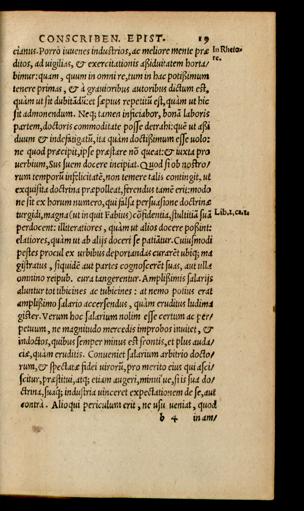 CONSCRIBEN. EPIST. 19
cianus. Porrò iuuenes industrios, ac meliore mente præ
In Rheto-
re.
ditos, ad uigilias, & exercitationis aßiduitatem horta/
bimur: quam, quum in omni re, tum in hac potißimum
tenere primas, & à grauioribus autoribus dictum est,
quàm ut sit dubitãdũ: et sæpius repetitũ est, quàm ut hic
sit admonendum. Neq; tamen inficiabor, bonã laboris
partem, doctoris commoditate posse detrahi: quẽ ut aßi
duum & indefatigatũ, ita quàm doctißimum esse uolo:
ne quod præcipit, ipse præstare nõ queat: & iuxta pro
uerbium, Sus suem docere incipiat. Quod si ob nostro/
rum temporũ infelicitatẽ, non temere talis contingit, ut
exquisita doctrina præpolleat, ferendus tamẽ erit: modo
ne sit ex horum numero, qui falsa persuasione doctrinæ
turgidi, magna (ut inquit Fabius) cõfidentia, stultitiã suã
Lib.1.ca.1.
perdocent: illiteratiores, quàm ut alios docere poßint:
elatiores, quàm ut ab alijs doceri se patiãtur. Cuiusmodi
pestes procul ex urbibus deportandas curarẽt ubiq; ma
gistratus, siquidẽ aut partes cognoscerẽt suas, aut ulla
omnino reipub. cura tangerentur. Amplißimis salarijs
aluntur tot tibicines ac tubicines: at nemo potius erat
amplißimo salario accersendus, quàm eruditus ludima
gister. Verum hoc salarium nolim esse certum ac per/
petuum, ne magnitudo mercedis improbos inuitet, &
indoctos, quibus semper minus est frontis, et plus auda/
ciæ, quàm eruditis. Conueniet salarium arbitrio docto/
rum, & spectatæ fidei uirorũ, pro merito eius qui asci/
scitur, præstitui, atq; etiam augeri, minui'ue, si is sua do/
ctrina, suaq; industria uinceret expectationem de se, aut
contrà. Alioqui periculum erit, ne usu ueniat, quod
b 4 in am/